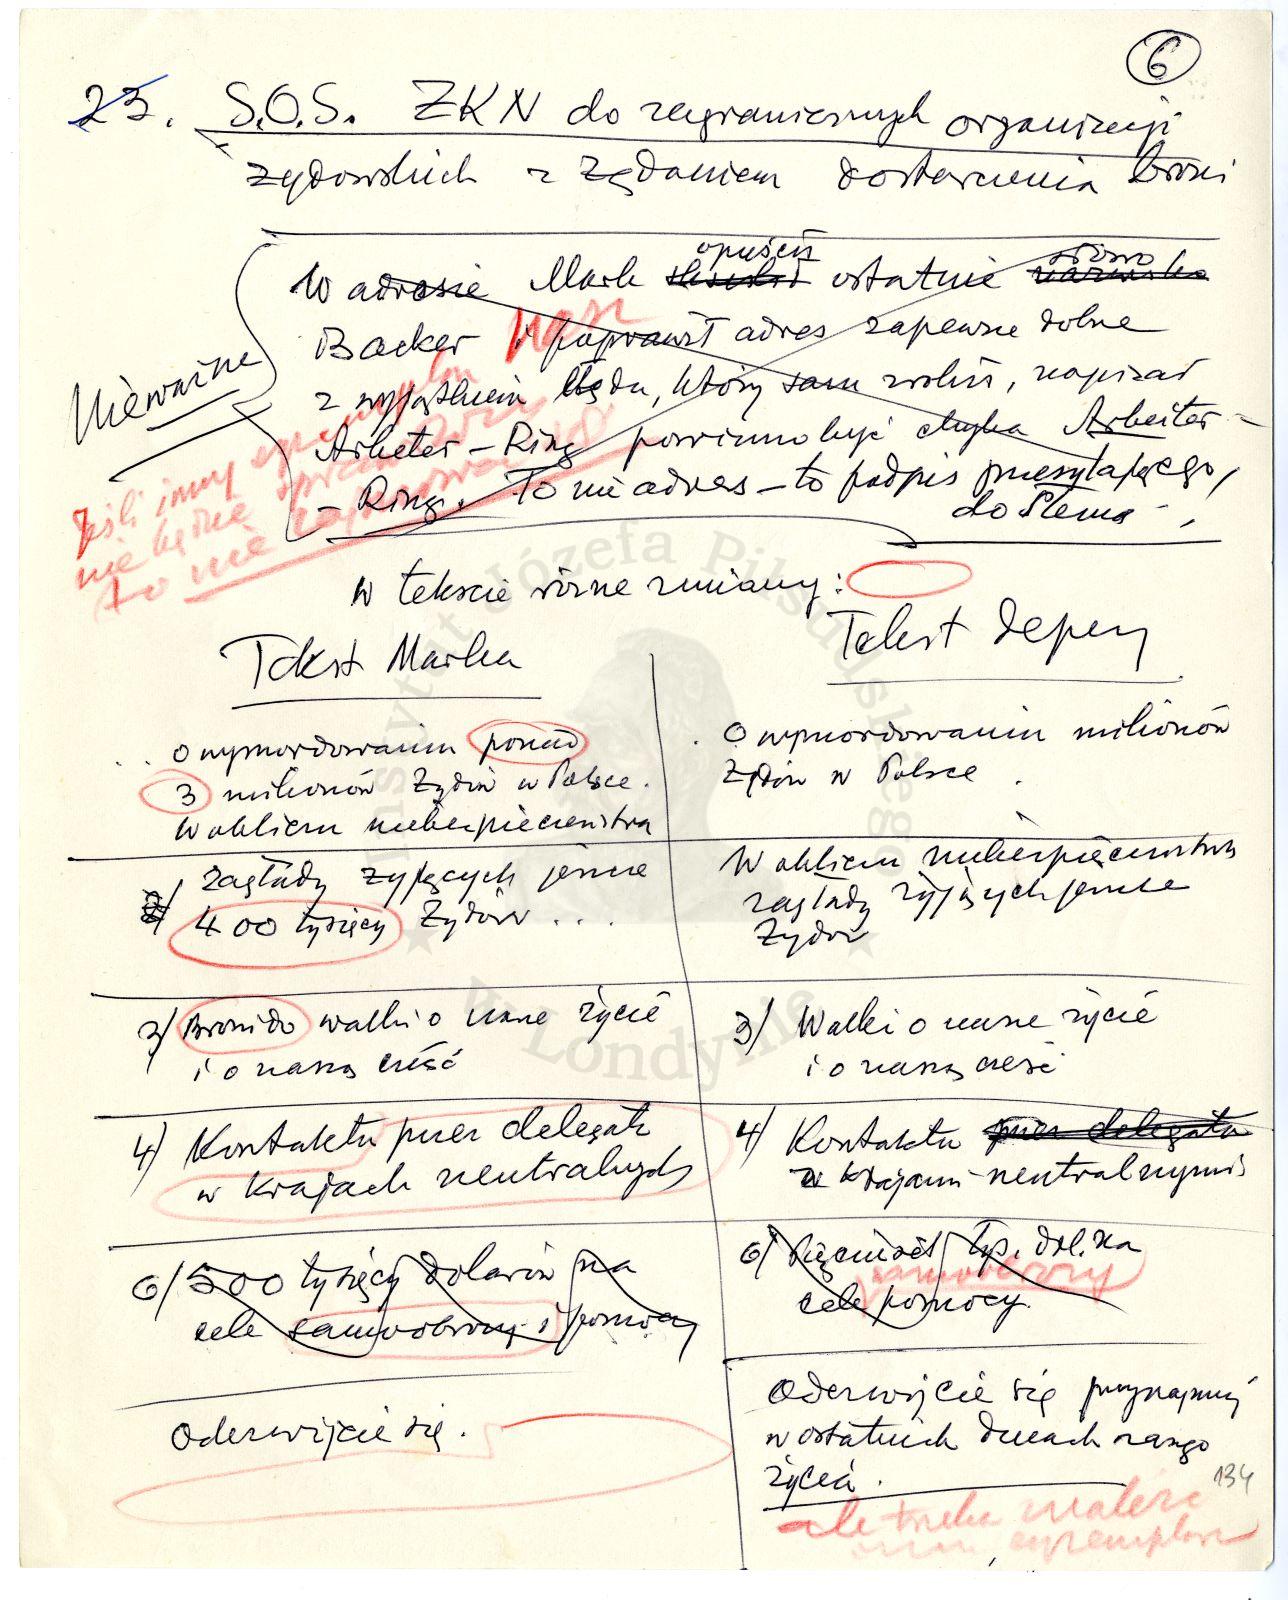 6
23. S.O.S. ZKN do zagranicznych organizacji
żydowskich z żądaniem dostarczenia broni
Nieważne
opuścił słowo
W adresie Mark ostatnie
Backer i poprawił adres zapewne dolne
z wyjątkiem błędu, który sam zrobił, napisał
Arbeter – Ring powinno być chyba Arbeiter –
– Ring. To nie adres – to podpis przesyłającego,
do Szema
jeśli inny egzemplarz
nie będzie
to nie
w tekscie różne zmiany:
Tekst Marka
Tekst depeszy
. . o wymordowaniu ponad
3 milionów Żydów w Polsce.
W obliczu niebezpieczeństwa
. O wymordowaniu milionów
Żydów w Polsce .
2/ zagłady żyjących jeszcze
400 tysięcy Żydów . . . .
W obliczu niebezpieczeństwa
zagłady żyjących jeszcze
Żydów
3/ Broni do walki o nasze życie
i o naszą cześć
3/ Walki o nasze życie
i o naszą cześć
4/ Kontaktu przez delegata
w krajach neutralnych
4/ Kontaktu przez delegata
z krajami neutralnymi
6/ 500 tysięcy dolarów na
cele samoobrony i pomocy
6/ Pięćset tys. dol. na
samoobrony
cele pomocy.
Oderwijcie się.
Oderwijcie się przynajmniej
w ostatnich dniach naszego
życia.
134
ale trzeba znaleźć
egzemplarz
Instytut Józefa Piłsudskiego
w Londynie